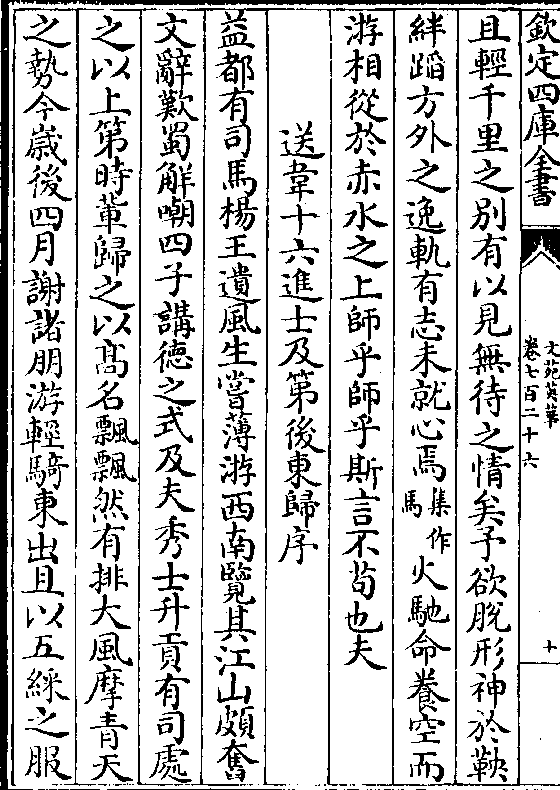 欽定四庫全書
文苑英華
卷七百二十六
十
且輕千里之别有以見無待之情矣予欲脱形神於鞅
絆蹈方外之逸軌有志未就心焉集作馬火馳命養空而
游相從於赤水之上師乎師乎斯言不苟也夫
送韋十六進士及第後東歸序
益都有司馬楊王遺風生嘗薄游西南覽其江山頗奮
文辭歎蜀解嘲四子講徳之式及夫秀士升貢有司處
之以上第時輩歸之以髙名飄飄然有排大風摩青天
之勢今嵗後四月謝諸朋游輕騎東出且以五綵之服